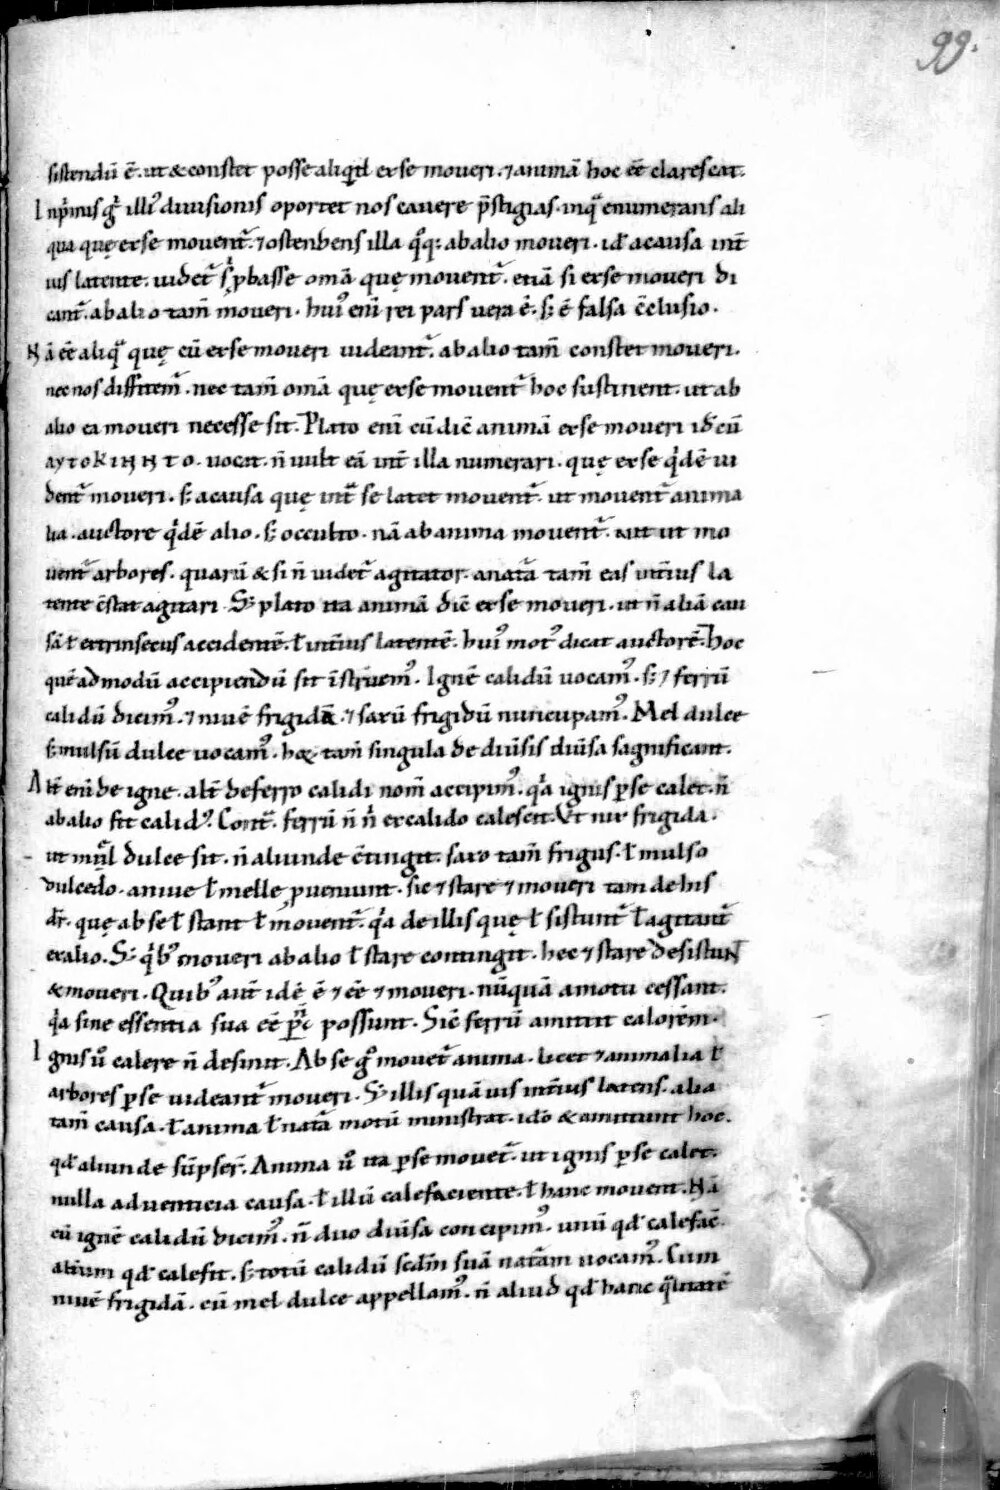 99.
sistendū ē. ut &constet posse aliqd exse moveri. ⁊animā hoc eē clarescat.
Inpͥmis gͦ illiꝰ divisionis oportet nos cavere p̄stigias. inqᵃ enumerans ali
qua quę exse movent᷑. ⁊ostendens illa qͦq; abalio moveri. id̄ acausa int̄
ius latente. videt᷑ ſ; ꝓbasse omā quę movent᷑. etiā si exse moveri di
cant᷑. abalio tam̄ moveri. huiꝰ eni rei pars vera ē. ſ; ē falsa c̄clusio.
Nā eē aliqᵃ quę cū exse moveri videant᷑. abalio tam̄ constet moveri.
nec nos diffitem᷑. nec tam̄ omā quę exse movent᷑ hoc sustinent. ut ab
alio ea moveri necesse sit. Plato eni cū dic̄ animā exse moveri id̄ cū
aytokinhto. vocat. n̄ vult eā int̄ illa numerari. quę exse qͥdē vi
dent᷑ moveri. ſ; acausa quę intᵃ se latet movent᷑. ut movent᷑ anima
lia. auctore qͥdē alio. ſ; occulto. nā abanima movent᷑. aut ut mo
vent᷑ arbores. quarū & si n̄ videt᷑ agitator. anatᵃ tam̄ eas int̄ius la
tente c̄stat agitari. S; plato ita animā dic̄ exse moveri. ut n̄ aliā cau
sā ł extrinsecus accidentē. ł int̄ius latentē. huiꝰ motꝰ dicat auctorē. hoc
quēadmodū accipiendū sit īstruemꝰ. Ignē calidū vocamꝰ. ſ; ⁊ ferrū
calidū dicimꝰ. ⁊ nivē frigidā. ⁊ saxū frigidū nuncupamꝰ. Mel dulce
ſ; mulsū dulce vocamꝰ. hęc tam̄ singula de divͥsis divͥsa sagnificant.
Alt̄ eni de igne. alt̄ deferro calidi nom̄ accipimꝰ. qͣ ignis ꝑse calet. n̄
abalio fit calidꝰ. Contᵃ. ferrū n̄ nͥ excalido calescit. Ut nix frigida.
ut mel dulce sit. n̄ aliunde c̄tingit. saxo tam̄ frigus. ł mulso
dulcedo. anive ł melle ꝓveniunt. sic ⁊ stare ⁊ moveri tam de his
dr̄. quę abse ł stant ł movent᷑. qͣ de illis quę ł sistunt᷑ ł agitant᷑
exalio. S; qͥbꝰ moveri abalio ł stare contingit. hec ⁊ stare desistunt
&moveri. Quibꝰ aut̄ idē ē ⁊ eē ⁊ moveri. nūquā amotu cessant.
qͣ sine essentia sua eē possunt. Sic̄ ferrū amittit calorem.
Ignis vͦ calere n̄ desinit. Ab se gͦ movet᷑ anima. licet ⁊animalia ł
arbores ꝑse videant᷑ moveri. S; illis quāvis int̄ius latens. alia
tam̄ causa. ł anima ł natᵃ motū ministrat. idō & amittunt hoc.
qd̄ aliunde sūpser̄. Anima vͦ ita ꝑse movet᷑. ut ignis ꝑse calet.
nulla adventicia causa. ł illū calefaciente. ł hanc movent. Nā
cū ignē calidū dicimꝰ. n̄ duo divͥsa concipimꝰ. unū qd̄ calefac̄.
alt̄ium qd̄ calefit. ſ; totū calidū scdm̄ suā natᵃm vocamꝰ. Cum
nivē frigidā. cū mel dulce appellamꝰ. n̄ aliud qd̄ hanc qͣlitatē